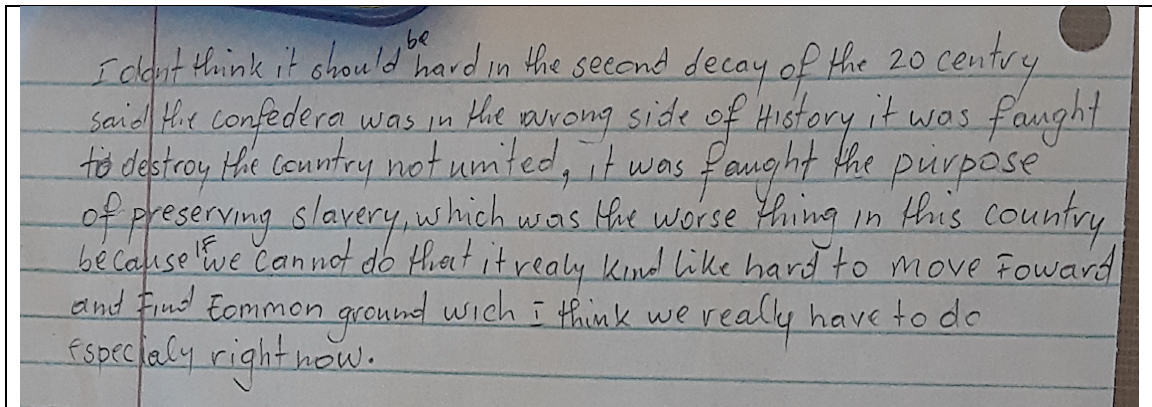 I didnt think it should be hard in the second decay of the 20 centry
said the confedera was in the wrong side of History it was faught
to destroy the country not umited, it was faught the purpose
of preserving slavery, which was the worse thing in this country
because IF we cannot do that it realy kind like hard to move Foward
and Find Common ground wich I think we really have to do
Especialy right now.